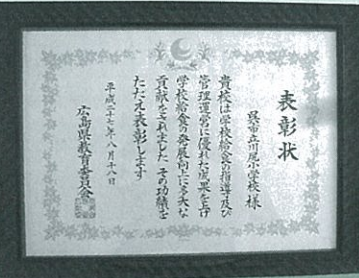 表彰状
呉市立川尻小学校 様
貴校は学校給食の指導及び
管理運営に優れた成果を上げ
学校給食の発展向上に多大な
貢献をされました その功績を
たたえ表彰します
平成二十七年八月十八日
広島県教育委員会